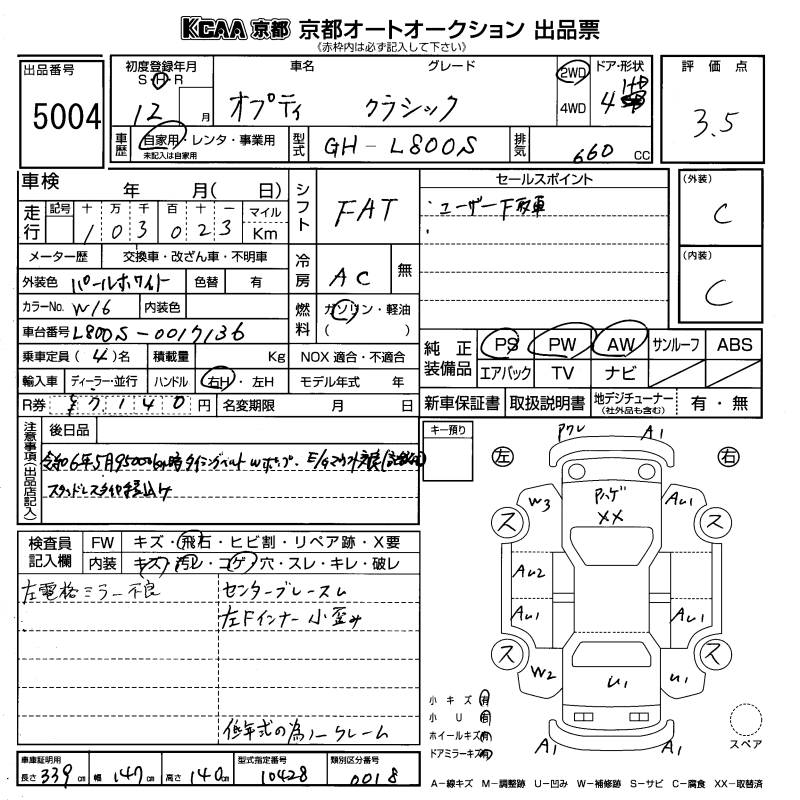 KCAA 京都 京都オートオークション 出品票
《赤枠内は必ず記入して下さい》
出品番号
5004
初度登録年月
S・H・R
12 月
車名
オプティ
グレード
クラシック
2WD
4WD
ドア・形状
4
評価点
3.5
車歴
自家用・レンタ・事業用
未記入は自家用
型式
GH-L800S
排気
660 CC
車検 年 月( 日)
走行
記号 十 万 千 百 十 一
1 0 3 0 2 3
マイル
Km
シフト
FAT
セールスポイント
・ユーザー下取車
・
(外装)
C
(内装)
C
メーター歴 交換車・改ざん車・不明車
外装色 パールホワイト 色替 有
カラーNo. W16 内装色
車台番号 L800S-0017136
冷房
AC
無
燃料
ガソリン・軽油
( )
乗車定員 (4)名 積載量 Kg NOX 適合・不適合
輸入車 ディーラー・並行 ハンドル 右H・左H モデル年式 年
R券 ¥7140円 名変期限 月 日
純正装備品
PS PW AW サンルーフ ABS
エアバック TV ナビ
新車保証書 取扱説明書 地デジチューナー(社外品も含む) 有・無
注意事項(出品店記入)
後日品
令和6年5月95000km時タイミングベルト Wポンプ、E/gマウント交換(記録有)
スタッドレスタイヤ積込み
キー預り
検査員記入欄
FW キズ・飛石・ヒビ割・リペア跡・X要
内装 キズ・汚レ・コゲ・穴・スレ・キレ・破レ
左電格ミラー不良
センターブレースム
左Fインナー小歪み
低年式の為ノークレーム
左 右
アワレ A1
W3 Aハゲ XX AU1
ス ス
AU2
AU1 AU1
ス ス
W2 U1 U1
A1 A1
小キズ 有
小U 有
ホイールキズ 有
ドアミラーキズ 有
スペア
車庫証明用
長さ 339cm 幅 147cm 高さ 140cm
型式指定番号
10428
類別区分番号
0018
A―線キズ M―調整跡 U―凹み W―補修跡 S―サビ C―腐食 XX―取替済